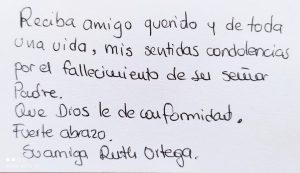 Reciba amigo querido y de toda
una vida, mis sentidas condolencias
por el fallecimiento de su señor
Padre.
Que Dios le de conformidad.
Fuerte abrazo.
Su amiga Ruth Ortega.